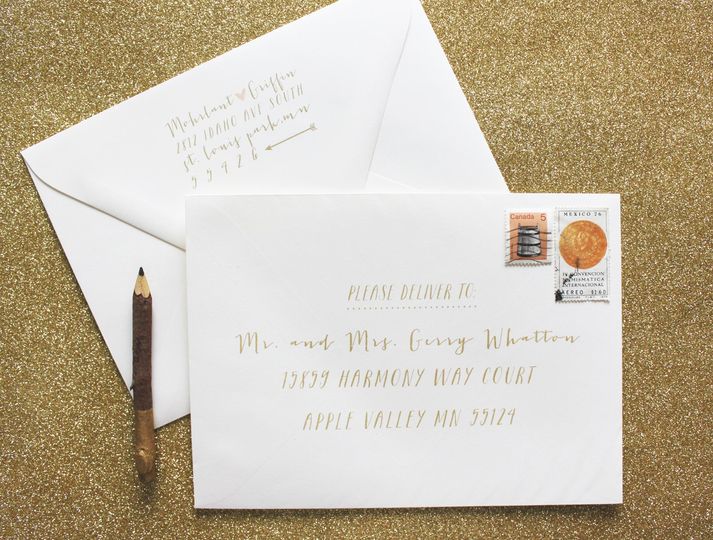 Mohrlant ♥ Griffin
2812 IDAHO AVE SOUTH
st. louis park, mn
55426
Canada 5
MEXICO 76
IV CONVENCION
NUMISMATICA
INTERNACIONAL
AEREO $1.60
PLEASE DELIVER TO:
Mr. and Mrs. Gerry Whatton
15859 HARMONY WAY COURT
APPLE VALLEY MN 55124